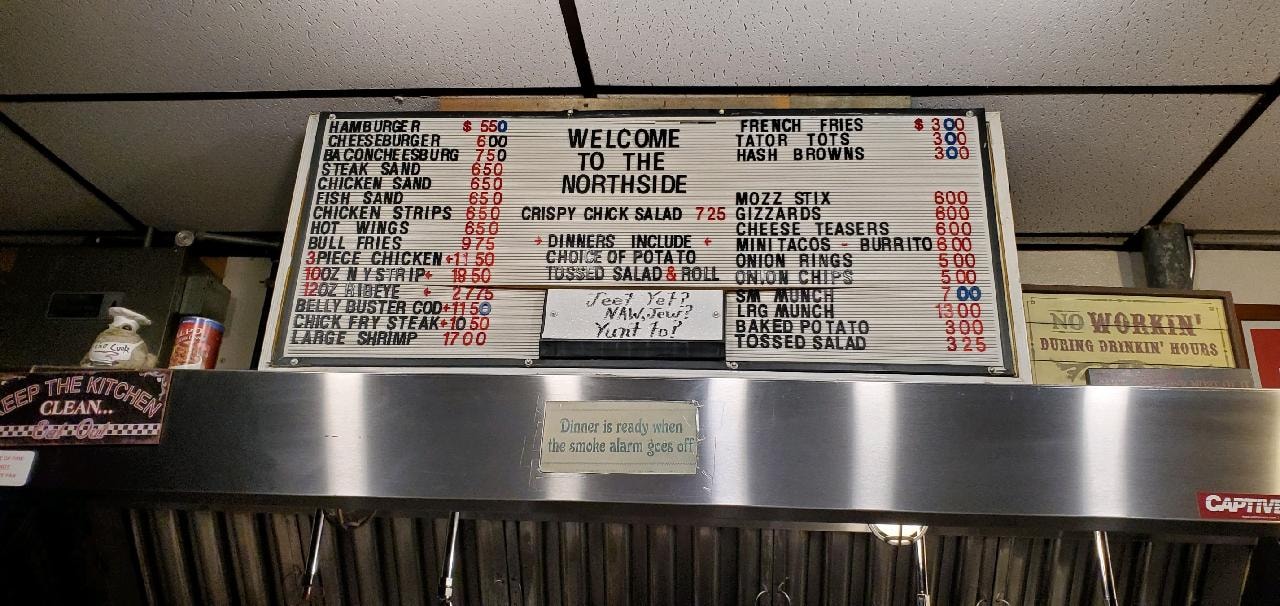 HAMBURGER $ 550
CHEESEBURGER 600
BACONCHEESBURG 750
STEAK SAND 650
CHICKEN SAND 650
FISH SAND 650
CHICKEN STRIPS 650
HOT WINGS 650
BULL FRIES 975
3PIECE CHICKEN+11 50
10OZ N Y STRIP+ 18 50
12OZ RIBEYE + 2775
BELLY BUSTER COD+1150
CHICK FRY STEAK+10 50
LARGE SHRIMP 1700
WELCOME
TO THE
NORTHSIDE
CRISPY CHICK SALAD 725
DINNERS INCLUDE
CHOICE OF POTATO
TOSSED SALAD & ROLL
Jeet Yet?
NAW, Jew?
Yunt to?
FRENCH FRIES $ 300
TATOR TOTS 300
HASH BROWNS 300
MOZZ STIX 600
GIZZARDS 600
CHEESE TEASERS 600
MINI TACOS - BURRITO 600
ONION RINGS 500
ONION CHIPS 500
SM MUNCH 700
LRG MUNCH 1300
BAKED POTATO 300
TOSSED SALAD 325
NO WORKIN'
DURING DRINKIN' HOURS
KEEP THE KITCHEN
CLEAN...
Eat Out
Dinner is ready when
the smoke alarm goes off
CAPTIVE